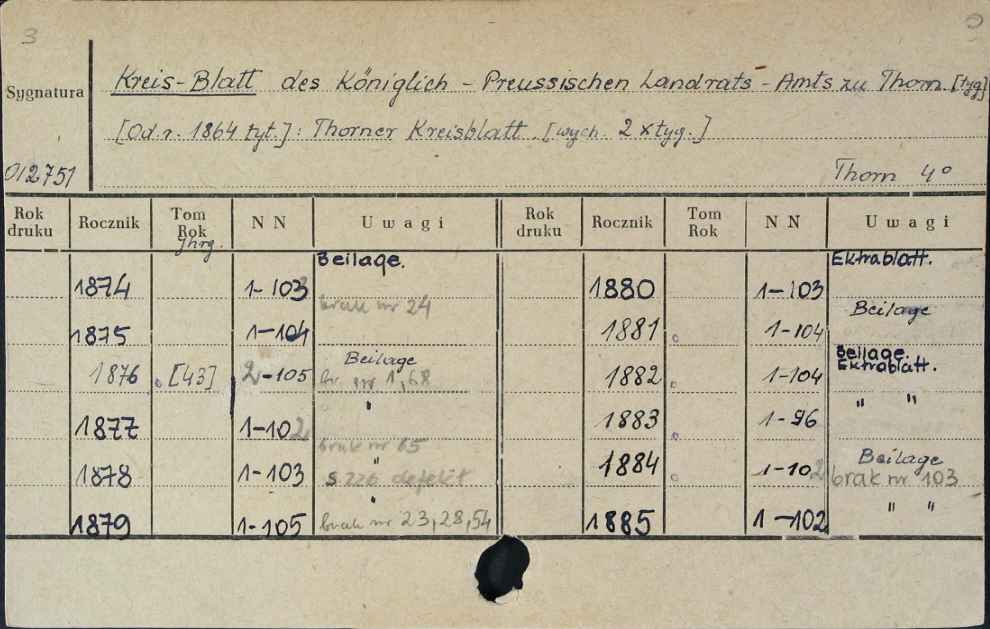 3
Sygnatura Kreis-Blatt des Königlich-Preussischen Landrats-Amts zu Thorn. [tyg]
[Od r. 1864 tyt.]: Thorner Kreisblatt. [wych. 2 x tyg.]
012751 Thorn 4°
Rok druku Rocznik Tom Rok Jhrg. NN Uwagi Rok druku Rocznik Tom Rok NN Uwagi
Beilage. Ektrablatt.
1874 1-103 brak nr 24 1880 1-103
Beilage
1875 1-104 1881 1-104
Beilage Beilage. Ektrablatt.
1876 [43] 2-105 br. nr 1,68 1882 1-104
" " "
1877 1-102 brak nr 65 1883 1-96
" Beilage
1878 1-103 s 226 defekt 1884 1-102 brak nr 103
" " "
1879 1-105 brak nr 23,28,54 1885 1-102